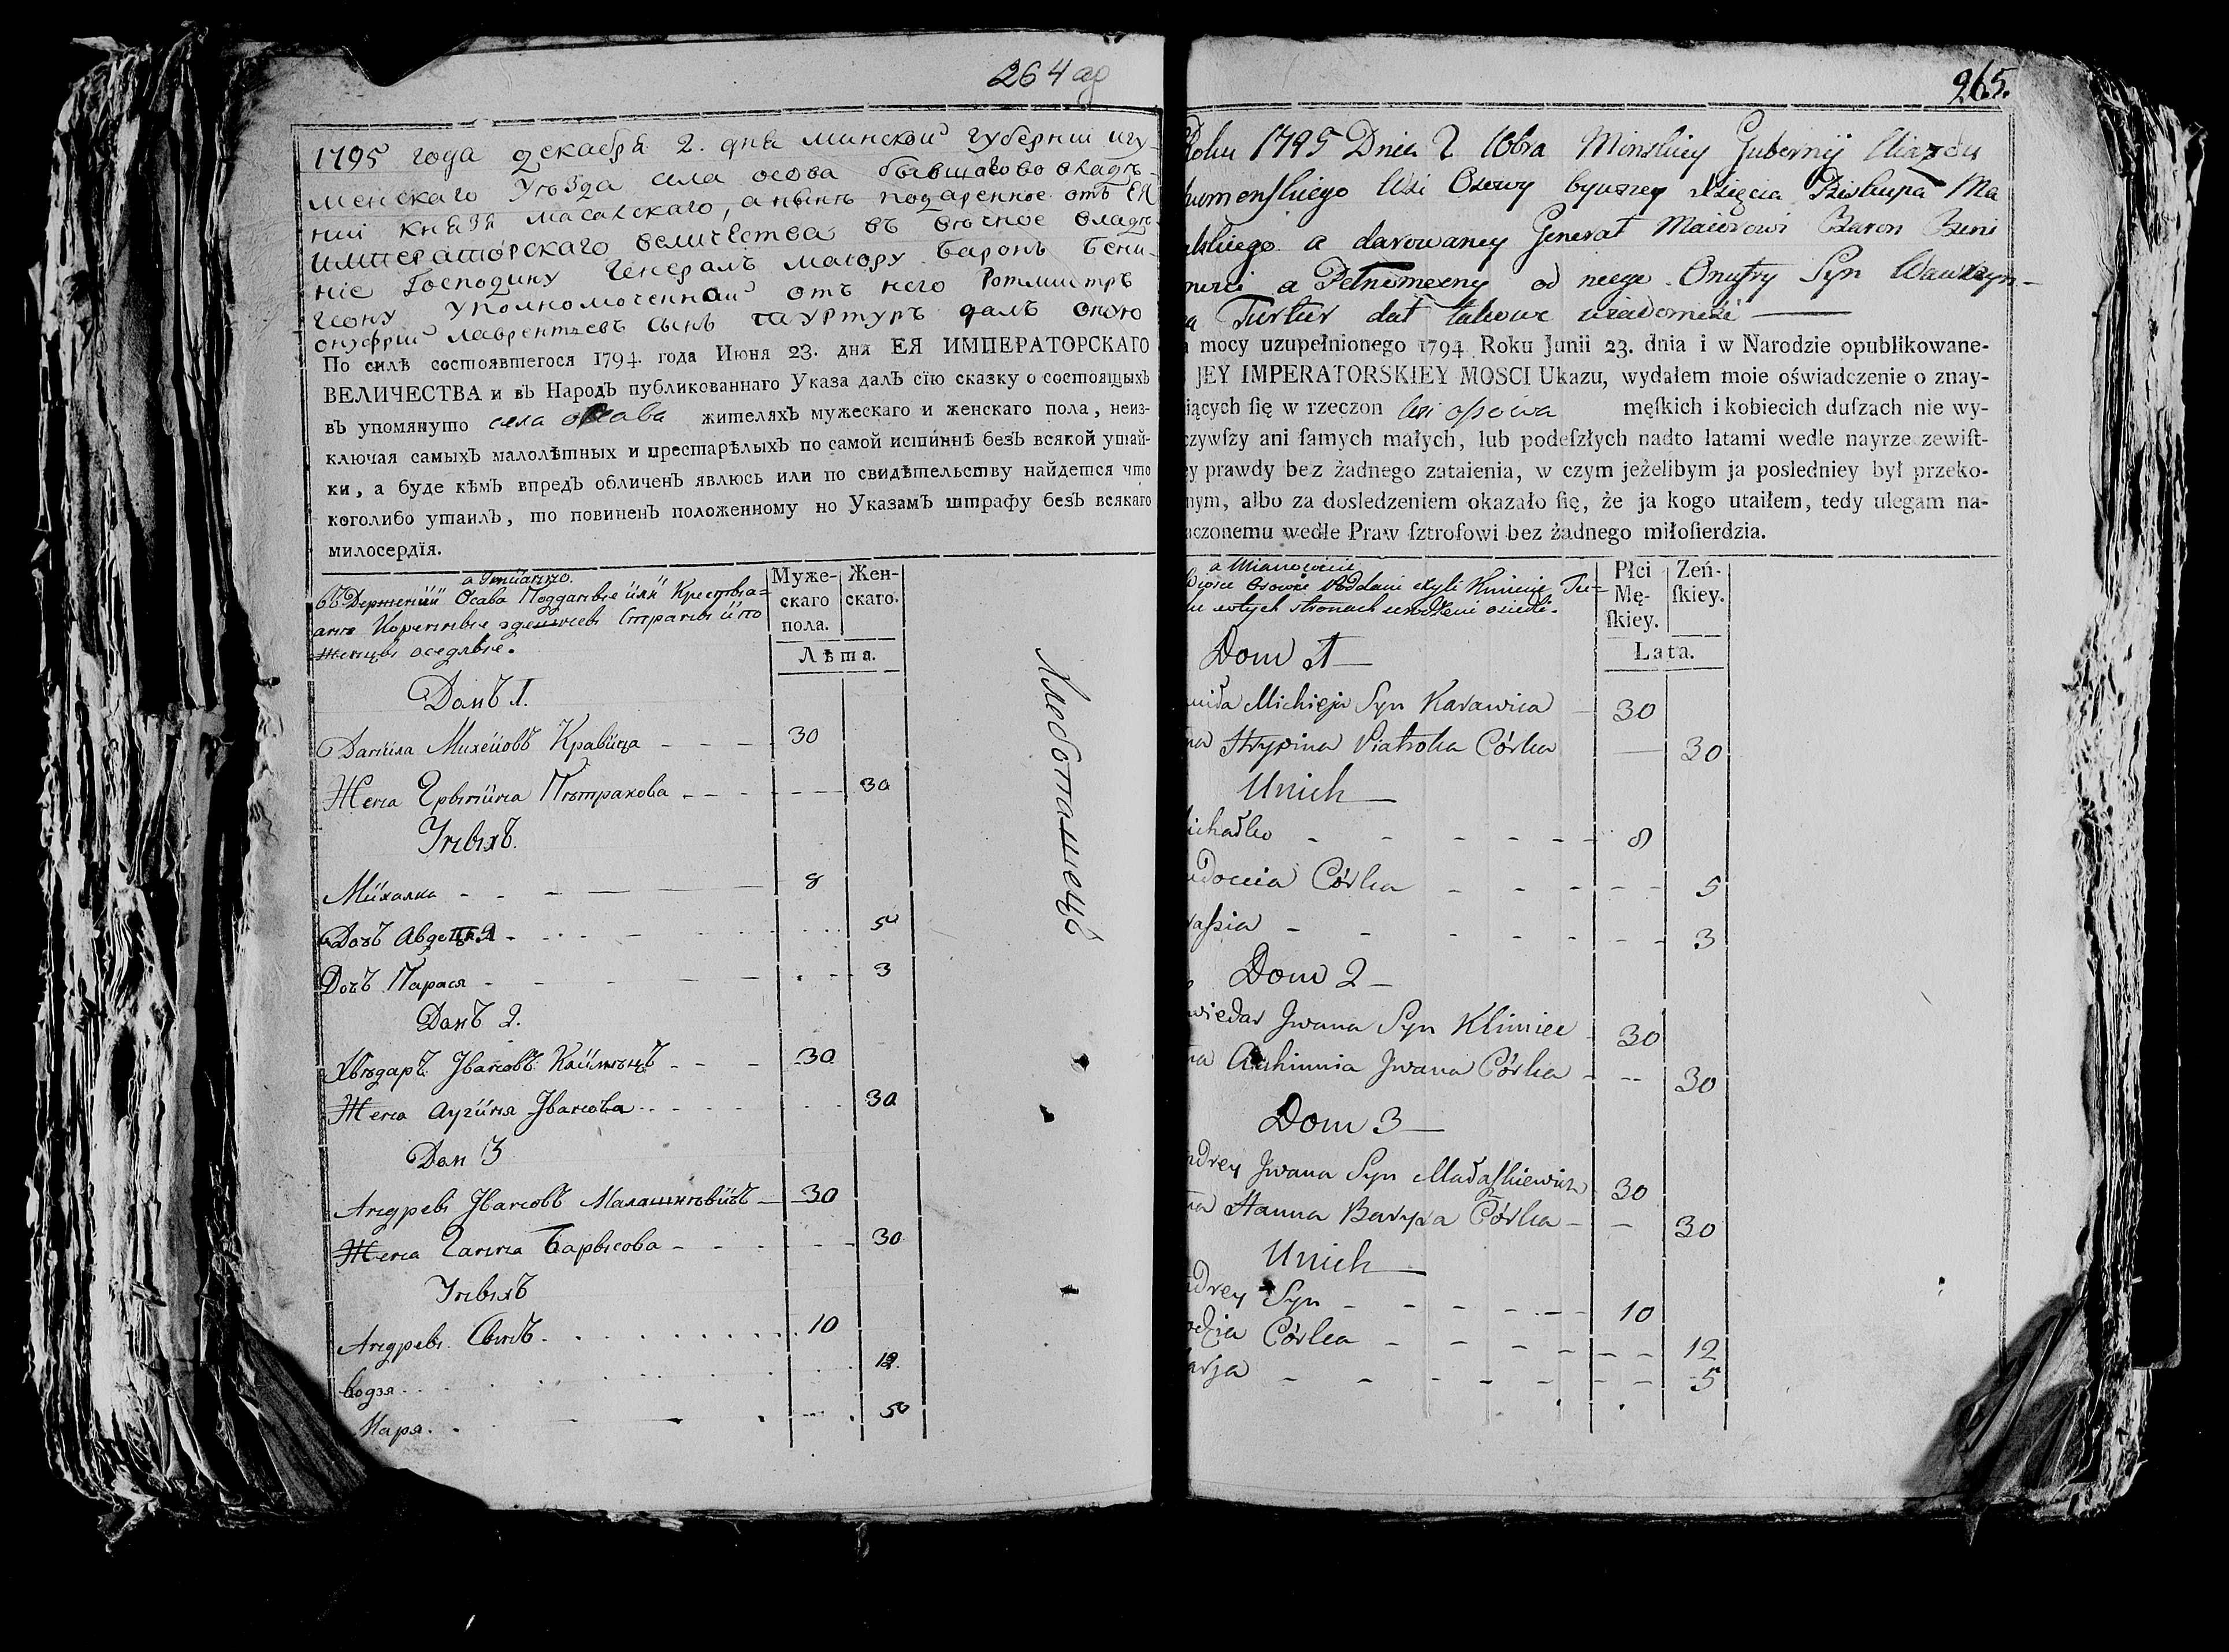 264 об
1795 года декабря 2. дня минской губернии игу-
менскаго уѣзда села осова бывшаго во владѣ-
нии князя масалскаго, а нынѣ подаренное отъ ЕЯ
императорскаго величества въ вѣчное владѣ-
ніе Господину Генералъ маіору баронъ Бени-
гсону уполномоченной отъ него Ротмистръ
онуфрий лаврентьевъ сынъ туртуръ далъ оную
По силѣ состоявшегося 1794. года Июня 23. дня ЕЯ ИМПЕРАТОРСКАГО
ВЕЛИЧЕСТВА и въ Народъ публикованнаго Указа далъ сїю сказку о состоящыхъ
въ упомянуто села осава жителяхъ мужескаго и женскаго пола, неиз-
ключая самыхъ малолѣтныхъ и престарѣлыхъ по самой истиннѣ безъ всякой утай-
ки, а буде кѣмъ впредъ обличенъ явлюсь или по свидѣтельству найдется что
коголибо утаилъ, то повиненъ положенному но Указамъ штрафу безъ всякаго
милосердїя.
а Імїанно.
Осава Подданые или Крестья=
ане Коренные здешней Страны и по
женцы оседлые.
Муже-
скаго
пола.
Жен-
скаго.
Лѣта.
Домъ 1.
Данила Михеиовъ Кравица 30
Жена Грыпина Пѣтракова 30
Уныхъ.
Михалка 8
Дочъ Авдоцья 5
Дочъ Парася 3
Домъ 2.
Хвѣдаръ Івановъ Климѣцъ 30
Жена Аугиня Іванова 30
Дом 3
Андрей Івановъ Малашкѣвичъ 30
Жена Ганна Барысова 30
Уныхъ
Андрей Сынъ 10
Водзя 12
Маря 5
Хлебопашецъ
265.
Roku 1795 Dnia 2 Xbra Minskiey Gubernij Uiazdu
humenskiego Wsi Osowy bywszey Xięcia Biskupa Ma
alskiego a darowaney Generał Maiorowi Baron Beni
a Pełnomocny od niego Onufry Syn Wawrzyn-
a Turtur dał takowe wiadomość
mocy uzupełnionego 1794 Roku Junii 23. dnia i w Narodzie opublikowane-
JEY IMPERATORSKIEY MOSCI Ukazu, wydałem moie oświadczenie o znay-
iących ſię w rzeczon Wsi Osowa męſkich i kobiecich duſzach nie wy-
czywſzy ani ſamych małych, lub podeſzłych nadto latami wedle nayrzeczewiſt-
ey prawdy bez żadnego zataienia, w czym jeżelibym ja posledniey był przeko-
nym, albo za dosledzeniem okazało ſię, że ja kogo utaiłem, tedy ulegam na-
aczonemu wedle Praw ſztrofowi bez żadnego miłoſierdzia.
a Mianowicie
Osowie Poddani czyli Kmiecie Tu=
w tych stronach urodzeni osiedli.
Płci
Mę-
ſkiey.
Zeń-
ſkiey.
Lata.
Dom 1
niła Michieja Syn Karawica 30
na Hrypina Piatroka Córka 30
Unich
ichałko 8
udoccia Córka 5
raſsia 3
Dom 2
wiedar Jwana Syn Klimiec 30
na Auhinnia Jwana Córka 30
Dom 3
ndrey Jwana Syn Małaſzkiewicz 30
na Hanna Barysa Córka 30
Unich
ndrey Syn 10
odzia Córka 12
arja 5